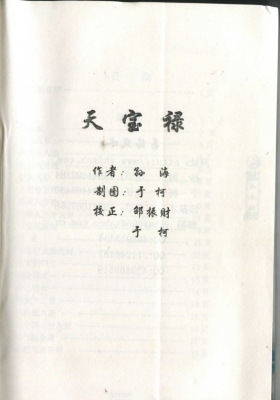 天宝禄
作者：孙 海
制图：于 柯
校正：邹振财
于 柯